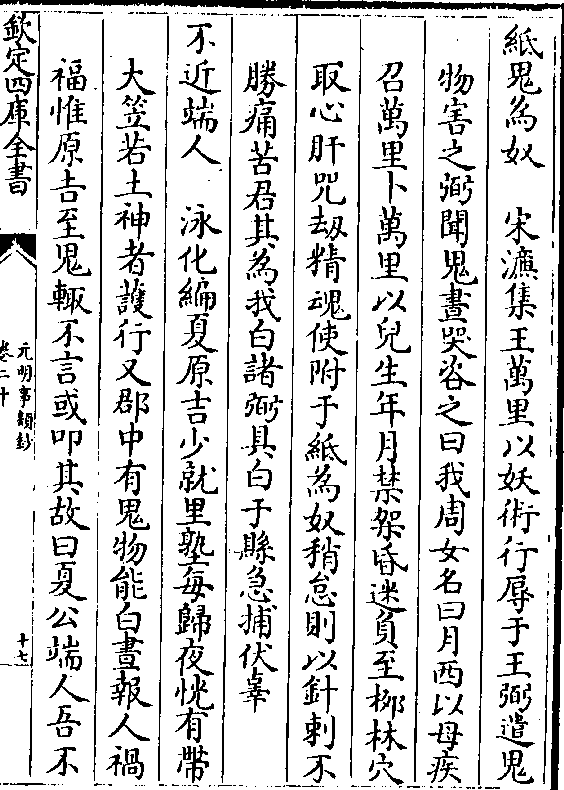 紙鬼為奴　宋濂集王萬里以妖術行辱于王弼遣鬼
物害之弼聞鬼晝哭咨之曰我周女名曰月西以母疾
召萬里卜萬里以兒生年月禁架昏迷負至柳林穴
取心肝咒劫精魂使附于紙為奴稍怠則以針刺不
勝痛苦君其為我白諸弼具白于縣急捕伏辜
不近端人　泳化編夏原吉少就里塾每歸夜恍有帶
大笠若土神者護行又郡中有鬼物能白晝報人禍
福惟原吉至鬼輙不言或叩其故曰夏公端人吾不
欽定四庫全書
元明事類鈔
卷二十
十七